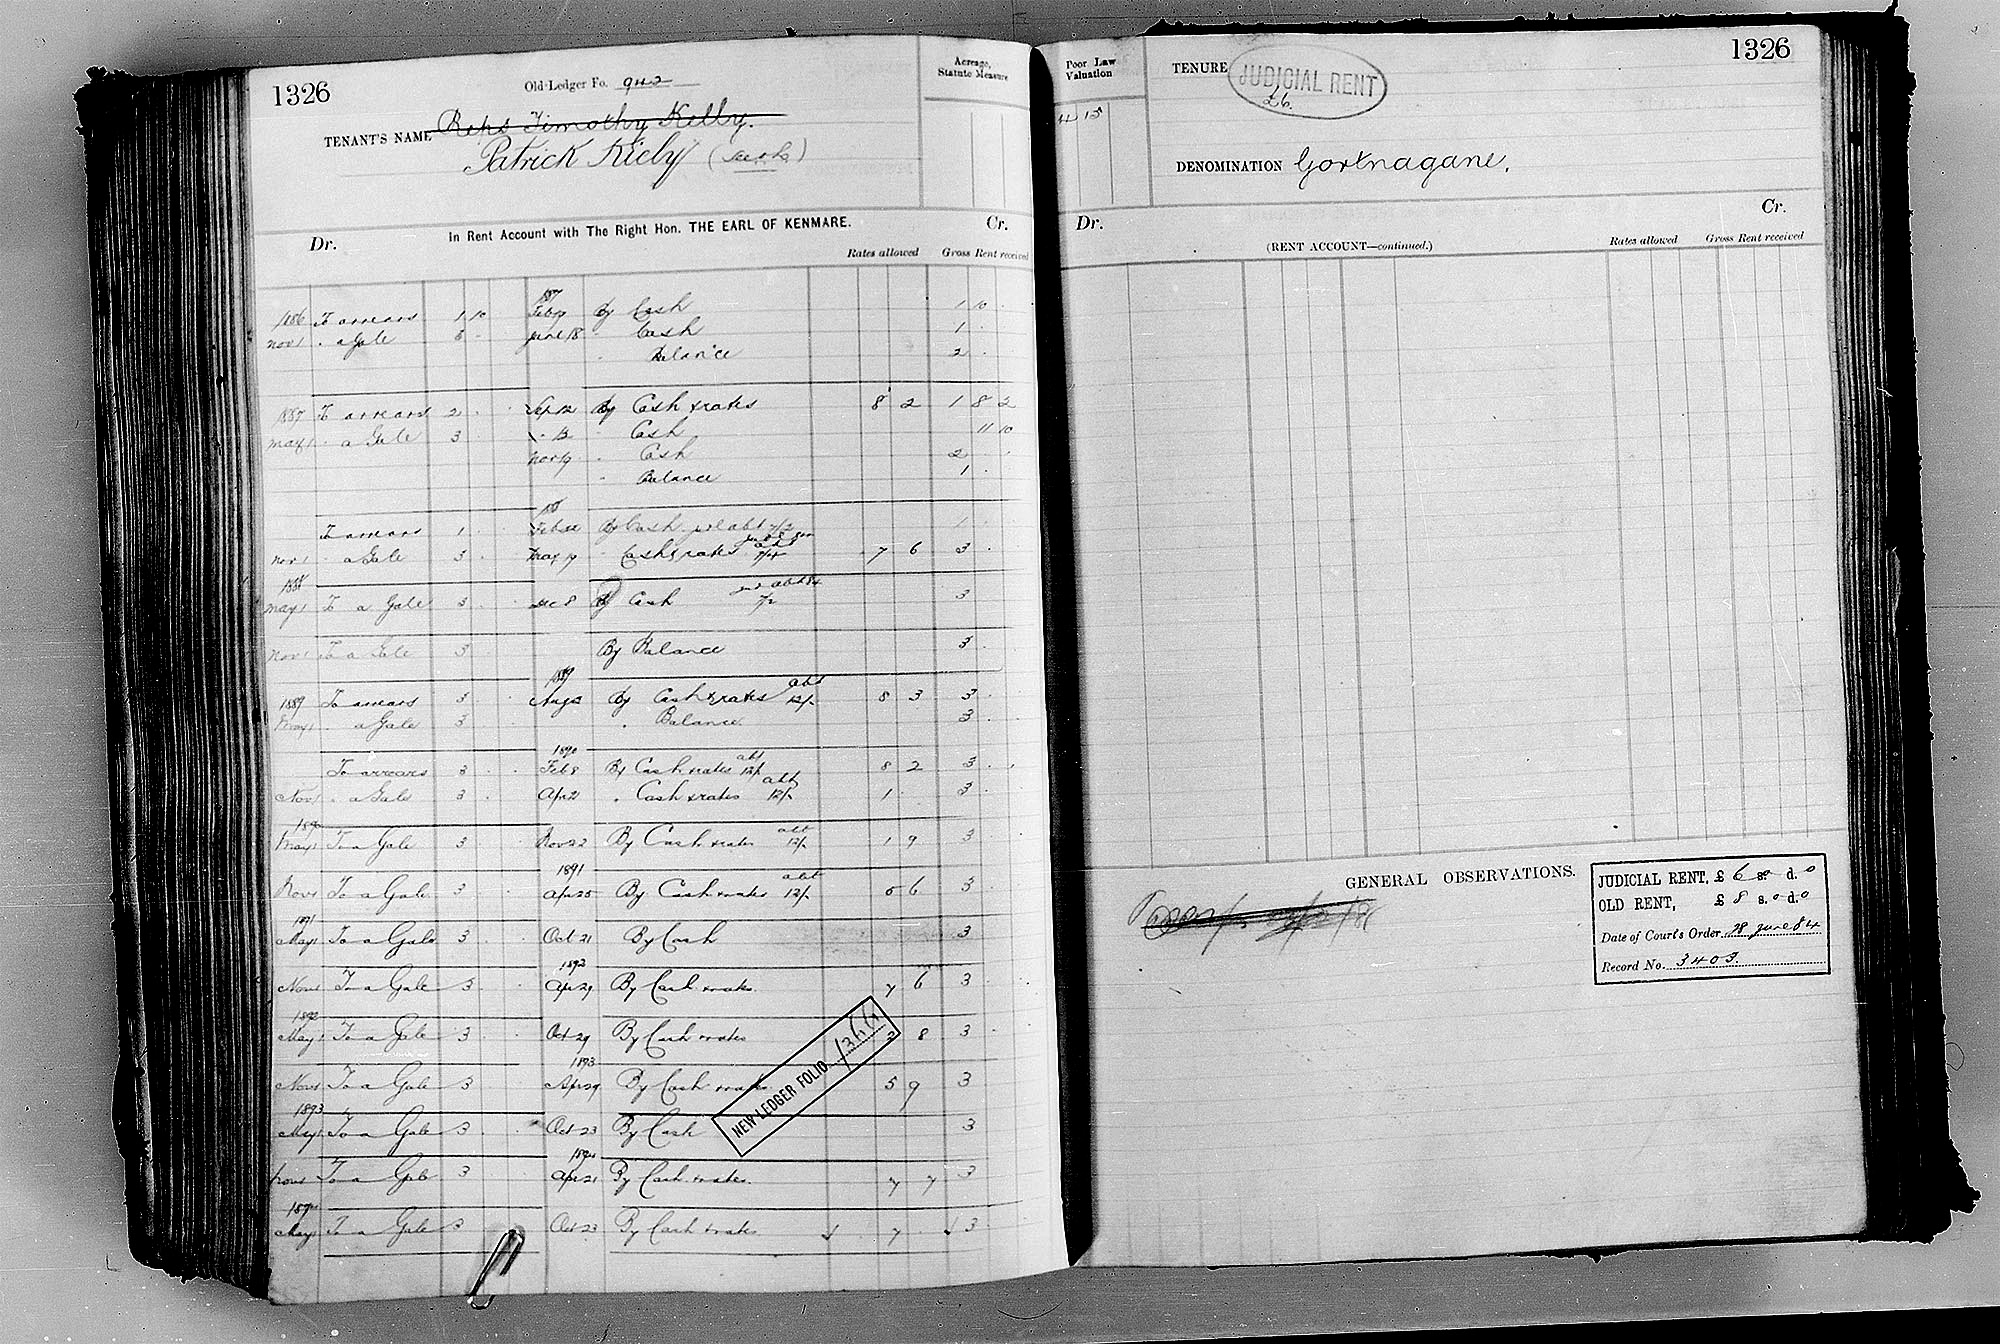 1326
Old Ledger Fo. 942
Acreage, Statute Measure
TENANT'S NAME Reps Timothy Kelly.
Patrick Kiely
In Rent Account with The Right Hon. THE EARL OF KENMARE.
Dr.
Cr.
Rates allowed Gross Rent received
1886 To arrears 1 10 1887 Feby By Cash 1 10
Nov 1 " a Gale 3 June 18 " Cash 1
" Balance 2
1887 To arrears 2 Sep 12 By Cash & rates 8 2 1 8 2
May 1 " a Gale 3 " 13 " Cash 11 10
Nov 19 " Cash 2
" Balance 1
To arrears 1 188 Feb By Cash abt 1
Nov 1 " a Gale 3 May 19 " Cash & rates abt 7 6 3
1888
May 1 To a Gale 3 Dec 8 By Cash abt 3
Nov 1 To a Gale 3 By Balance 3
1889 To arrears 3 1889 Aug By Cash & rates abt 12/- 8 3 3
May 1 " a Gale 3 " Balance 3
To arrears 3 1890 Feb 8 By Cash & rates abt 12/- 8 2 3
Nov 1 " a Gale 3 Apr 21 " Cash & rates abt 12/- 1 3
1890
May 1 To a Gale 3 Nov 22 By Cash & rates abt 12/- 1 9 3
Nov 1 To a Gale 3 1891 Apr 25 By Cash & rates abt 12/- 6 3
1891
May 1 To a Gale 3 Oct 21 By Cash 3
Nov 1 To a Gale 3 1892 Apr 29 By Cash & rates 7 6 3
1892
May 1 To a Gale 3 Oct 29 By Cash & rates 8 3
Nov 1 To a Gale 3 1893 Apr 29 By Cash & rates 5 9 3
1893
May 1 To a Gale 3 Oct 23 By Cash 3
Nov 1 To a Gale 3 1894 Apr 21 By Cash & rates 7 7 3
1894
May 1 To a Gale 3 Oct 23 By Cash & rates 7 3
NEW LEDGER FOLIO 1366
1326
Poor Law Valuation
4 15
TENURE
JUDICIAL RENT
£6.
DENOMINATION Gortnagane.
Dr.
Cr.
(RENT ACCOUNT—continued.)
Rates allowed Gross Rent received
GENERAL OBSERVATIONS.
JUDICIAL RENT, £ 6 s. d. 0
OLD RENT, £ 8 s. 0 d. 0
Date of Court's Order 28 June 84
Record No. 3403.